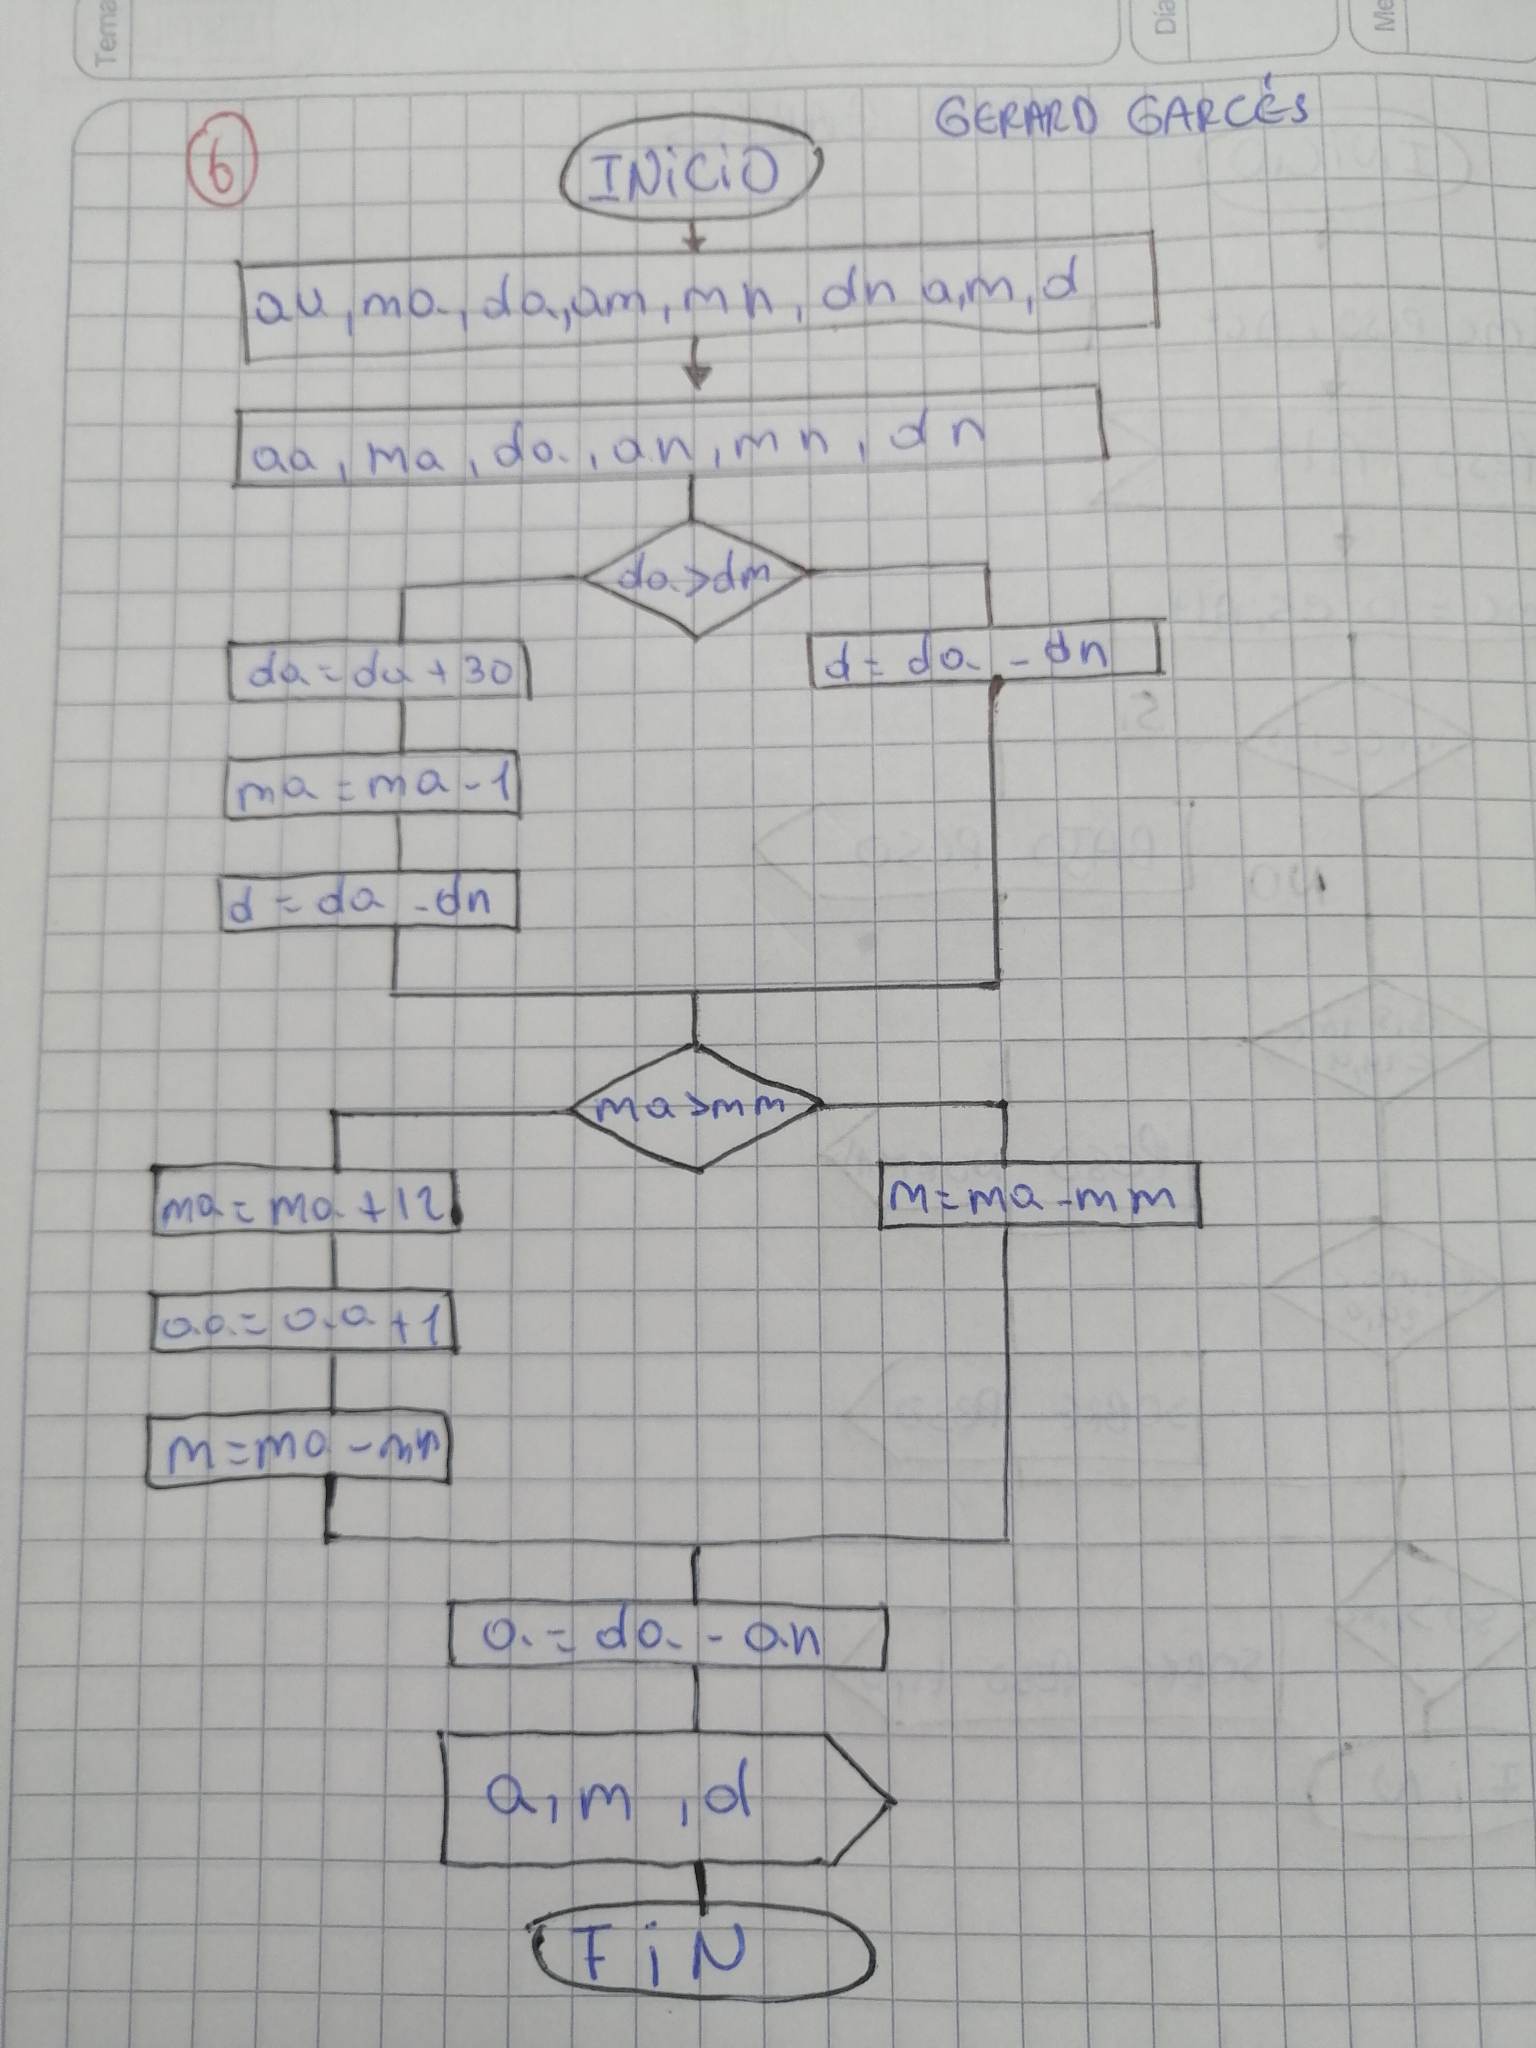 Tema
Día
Me
GERARD GARCÉS
6
INiCiO
au, ma, da, am, mn, dn a, m, d
aa, ma, da, an, mn, dn
da>dm
da = da + 30
d = da - dn
ma = ma - 1
d = da - dn
ma>mm
ma = ma + 12
m = ma - mm
aa = aa + 1
m = ma - mn
a = da - an
a, m, d
FiN